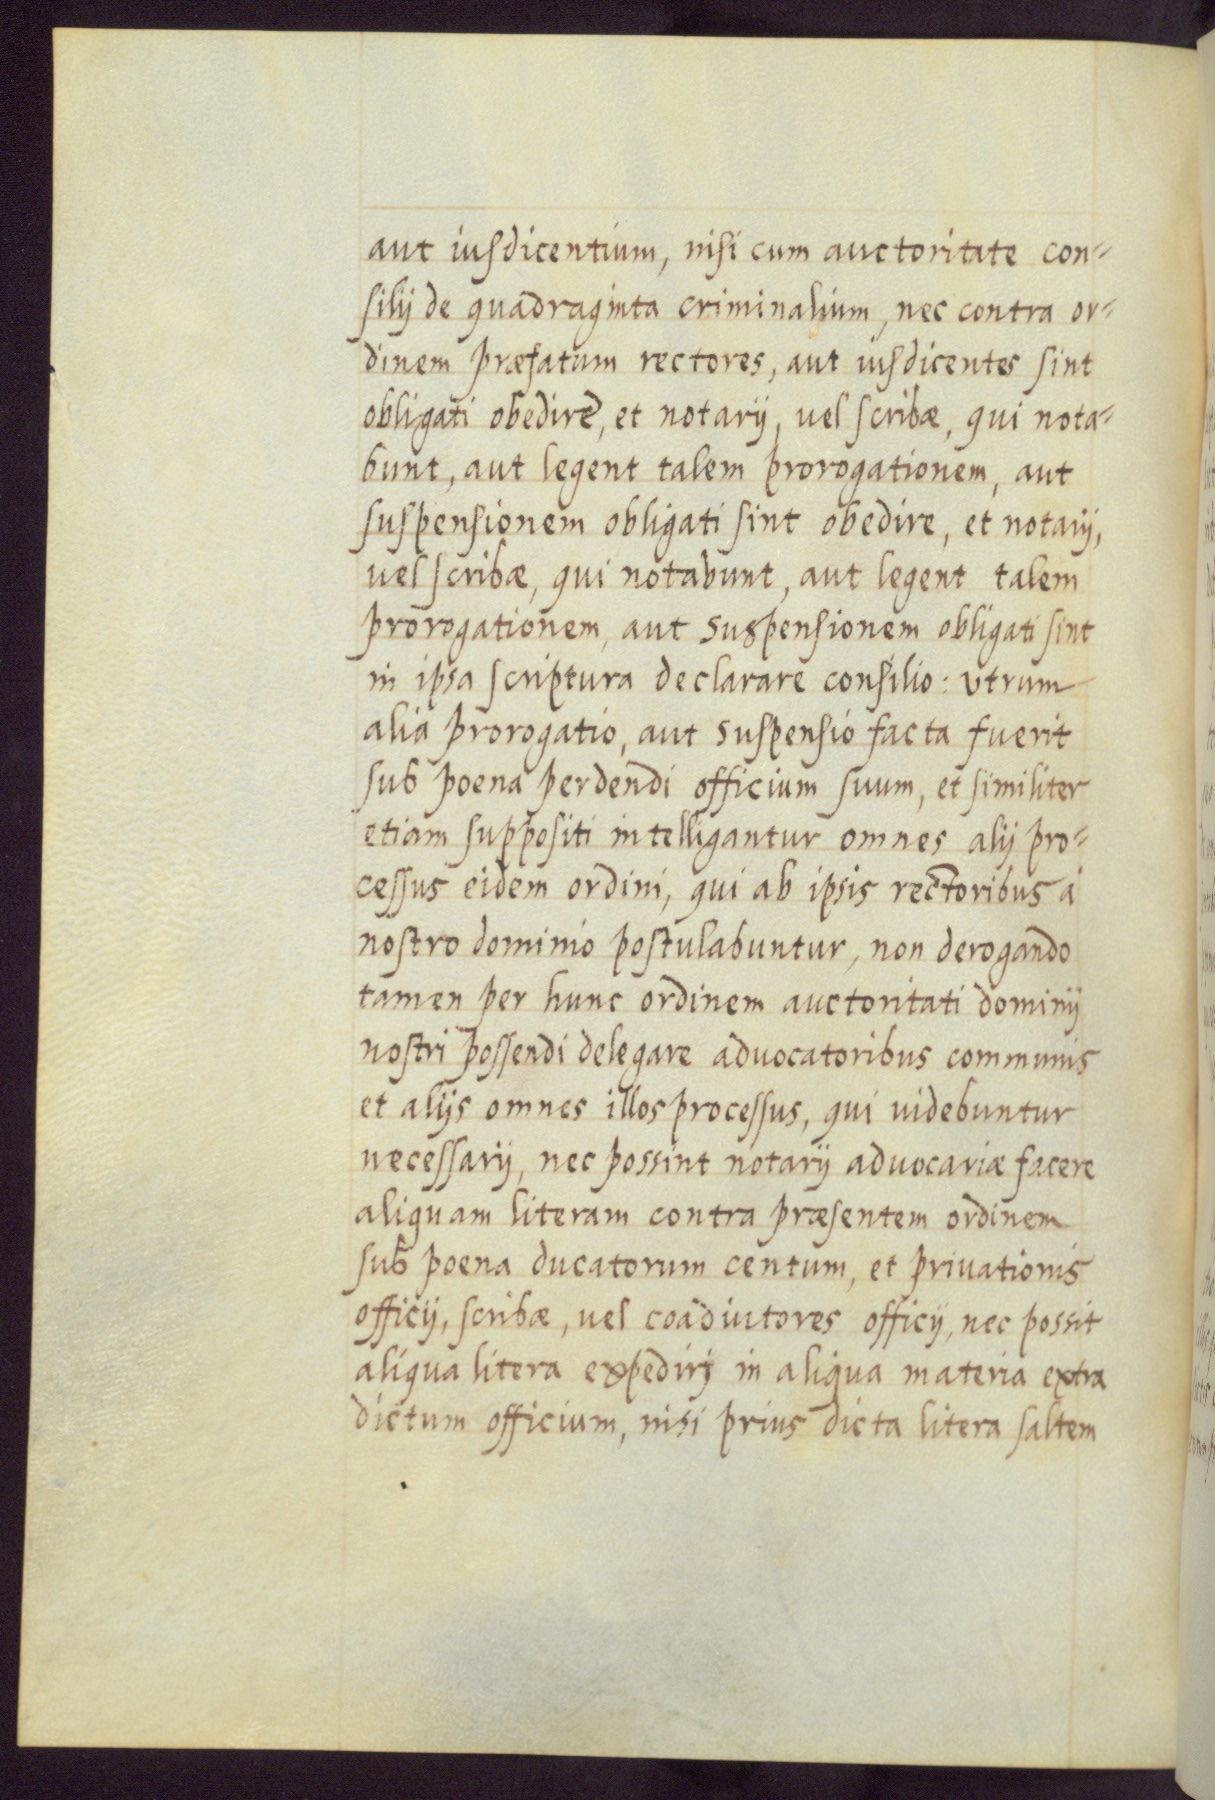 aut iusdicentium, nisi cum auctoritate con=
silij de quadraginta criminalium, nec contra or=
dinem præfatum rectores, aut iusdicentes sint
obligati obedire, et notarij, uel scribæ, qui nota=
bunt, aut legent talem prorogationem, aut
suspensionem obligati sint obedire, et notarij,
uel scribæ, qui notabunt, aut legent talem
prorogationem, aut suspensionem obligati sint
in ipsa scriptura declarare consilio: vtrum
alia prorogatio, aut suspensio facta fuerit
sub poena perdendi officium suum, et similiter
etiam suppositi intelligantur omnes alij pro=
cessus eidem ordini, qui ab ipsis rectoribus à
nostro dominio postulabuntur, non derogando
tamen per hunc ordinem auctoritati dominij
nostri possendi delegare aduocatoribus communis
et alijs omnes illos processus, qui uidebuntur
necessarij, nec possint notarij aduocariæ facere
aliquam literam contra præsentem ordinem
sub poena ducatorum centum, et priuationis
officij, scribæ, uel coadiutores officij, nec possit
aliqua litera expedirj in aliqua materia extra
dictum officium, nisi prius dicta litera saltem